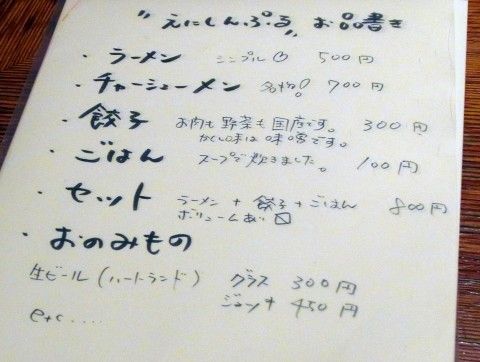 "えにしんぷる" お品書き
・ラーメン シンプル 500円
・チャーシューメン 名物! 700円
・餃子 お肉も野菜も国産です。 300円
かくし味は味噌です。
・ごはん スープで炊きました。 100円
・セット ラーメン + 餃子 + ごはん 800円
ボリュームあい
・おのみもの
生ビール (ハートランド) グラス 300円
ジョッキ 450円
etc.....